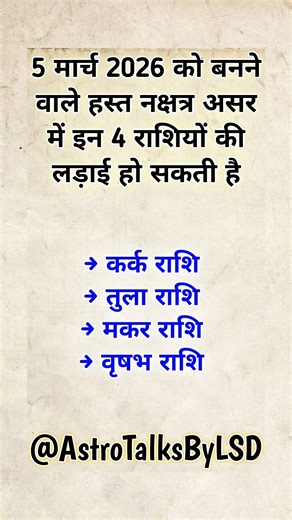 5 मार्च 2026 को बनने
वाले हस्त नक्षत्र असर
में इन 4 राशियों की
लड़ाई हो सकती है
→ कर्क राशि
→ तुला राशि
→ मकर राशि
→ वृषभ राशि
@AstroTalksByLSD